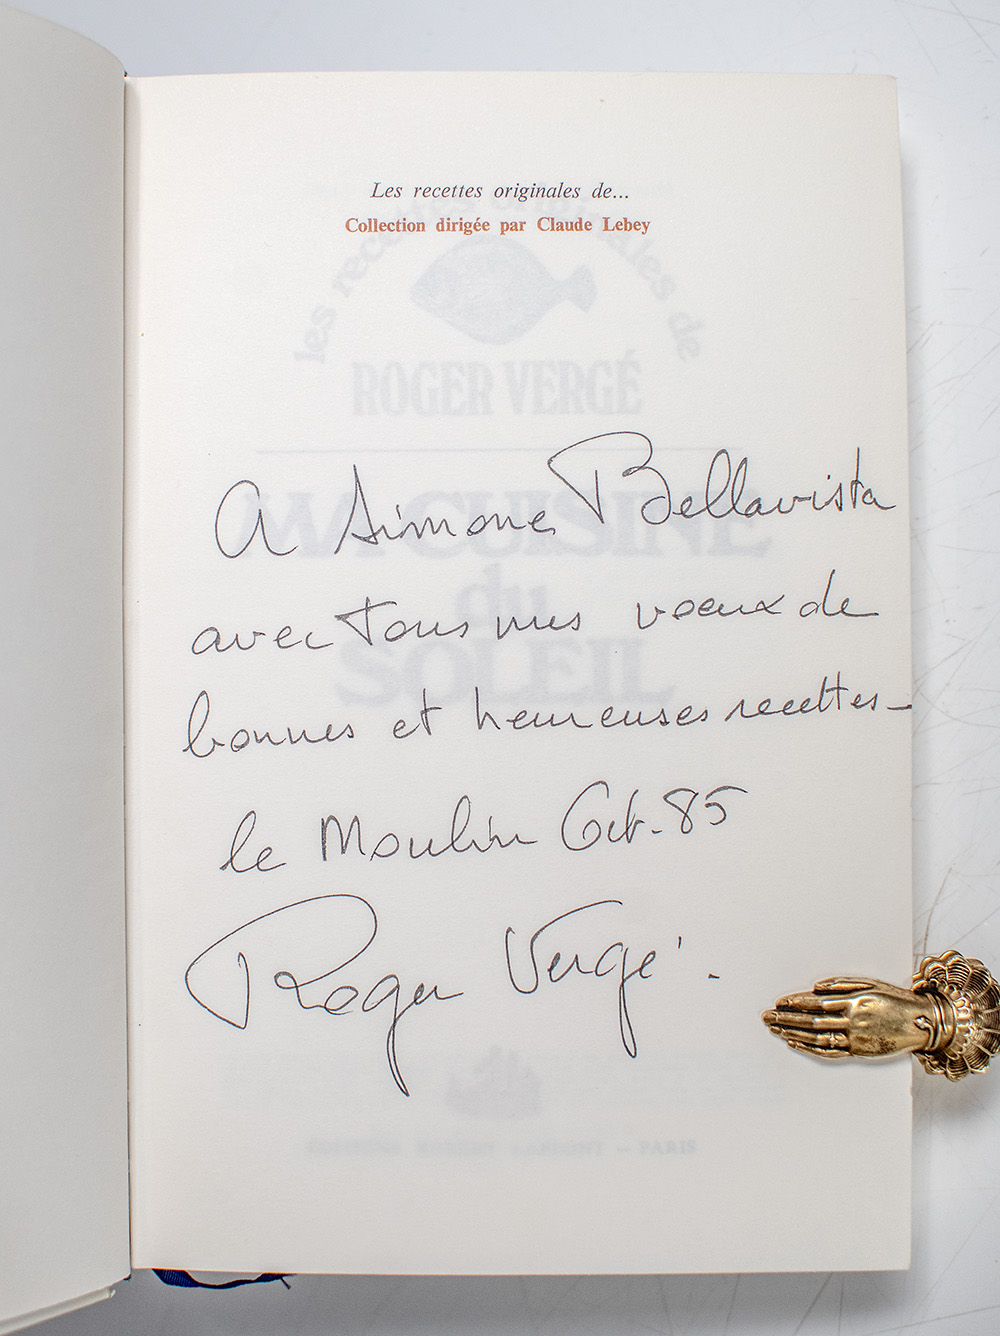 Les recettes originales de...
Collection dirigée par Claude Lebey
les recettes originales de
ROGER VERGÉ
MA CUISINE
du
SOLEIL
A Simone Bellavista
avec tous mes voeux de
bonnes et heureuses recettes_
le Moulin Oct. 85
Roger Vergé.
ÉDITIONS ROBERT LAFFONT – PARIS